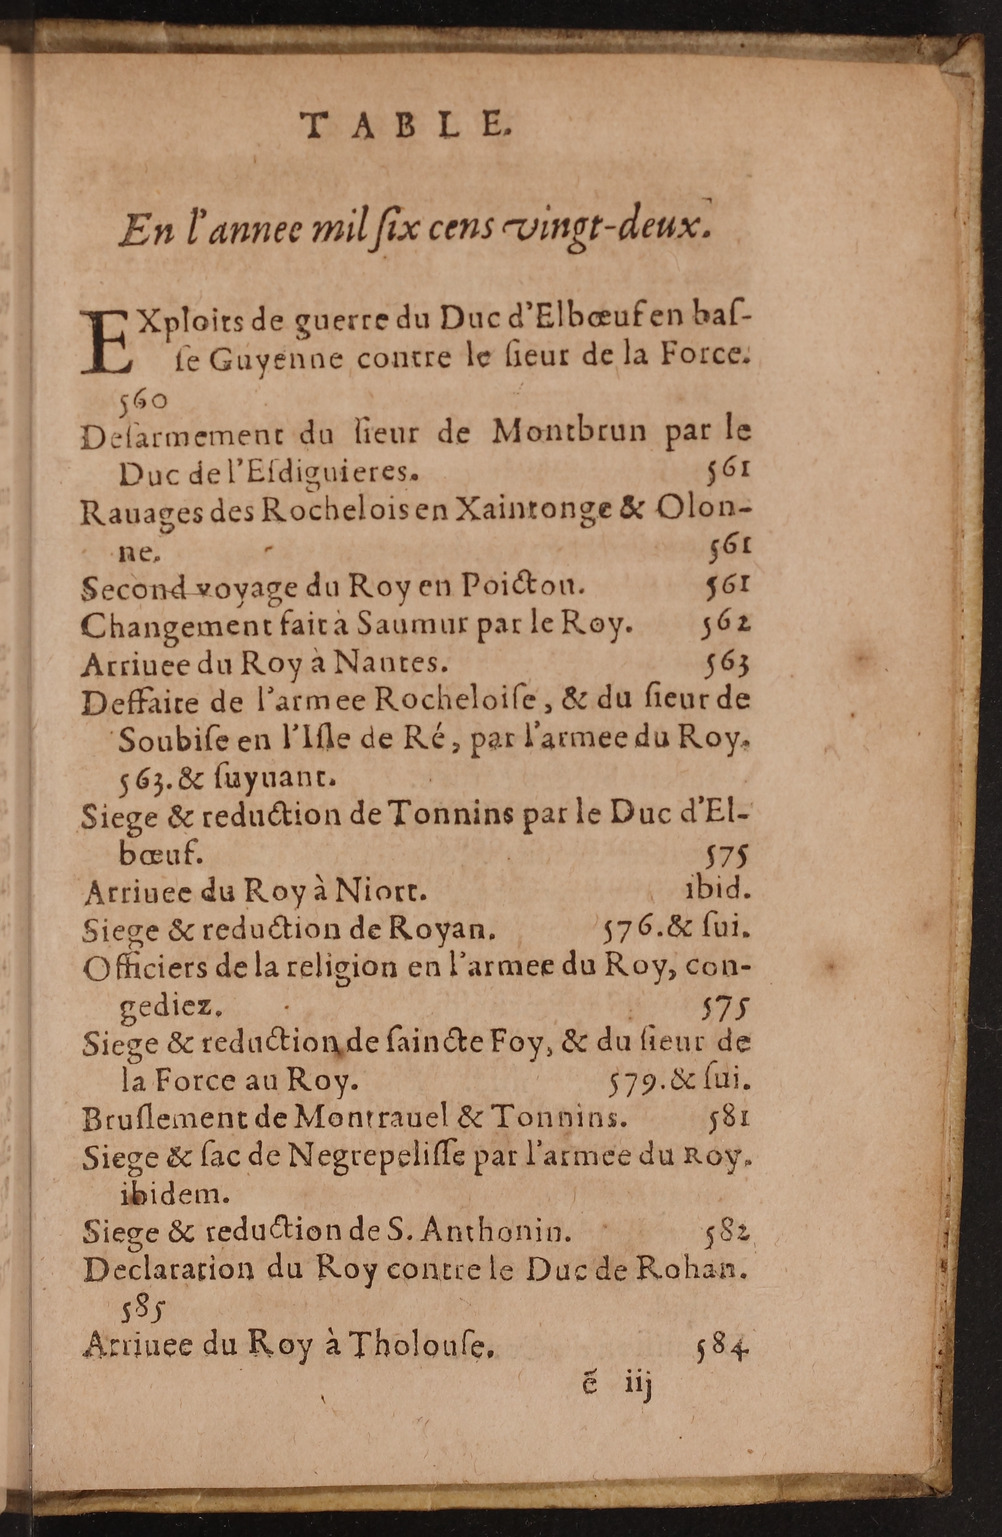 TABLE.
En l'annee mil ſix cens vingt-deux.
EXploits de guerre du Duc d'Elbœuf en baſ-
ſe Guyenne contre le ſieur de la Force.
560
Deſarmement du ſieur de Montbrun par le
Duc de l'Eſdiguieres. 561
Rauages des Rochelois en Xaintonge & Olon-
ne. 561
Second voyage du Roy en Poictou. 561
Changement fait à Saumur par le Roy. 562
Arriuee du Roy à Nantes. 563
Deffaite de l'armee Rocheloiſe, & du ſieur de
Soubiſe en l'Iſle de Ré, par l'armee du Roy.
563. & ſuyuant.
Siege & reduction de Tonnins par le Duc d'El-
bœuf. 575
Arriuee du Roy à Niort. ibid.
Siege & reduction de Royan. 576. & ſui.
Officiers de la religion en l'armee du Roy, con-
gediez. 575
Siege & reduction de ſaincte Foy, & du ſieur de
la Force au Roy. 579. & ſui.
Bruſlement de Montrauel & Tonnins. 581
Siege & ſac de Negrepeliſſe par l'armee du Roy.
ibidem.
Siege & reduction de S. Anthonin. 582
Declaration du Roy contre le Duc de Rohan.
585
Arriuee du Roy à Tholouſe. 584
ẽ iij